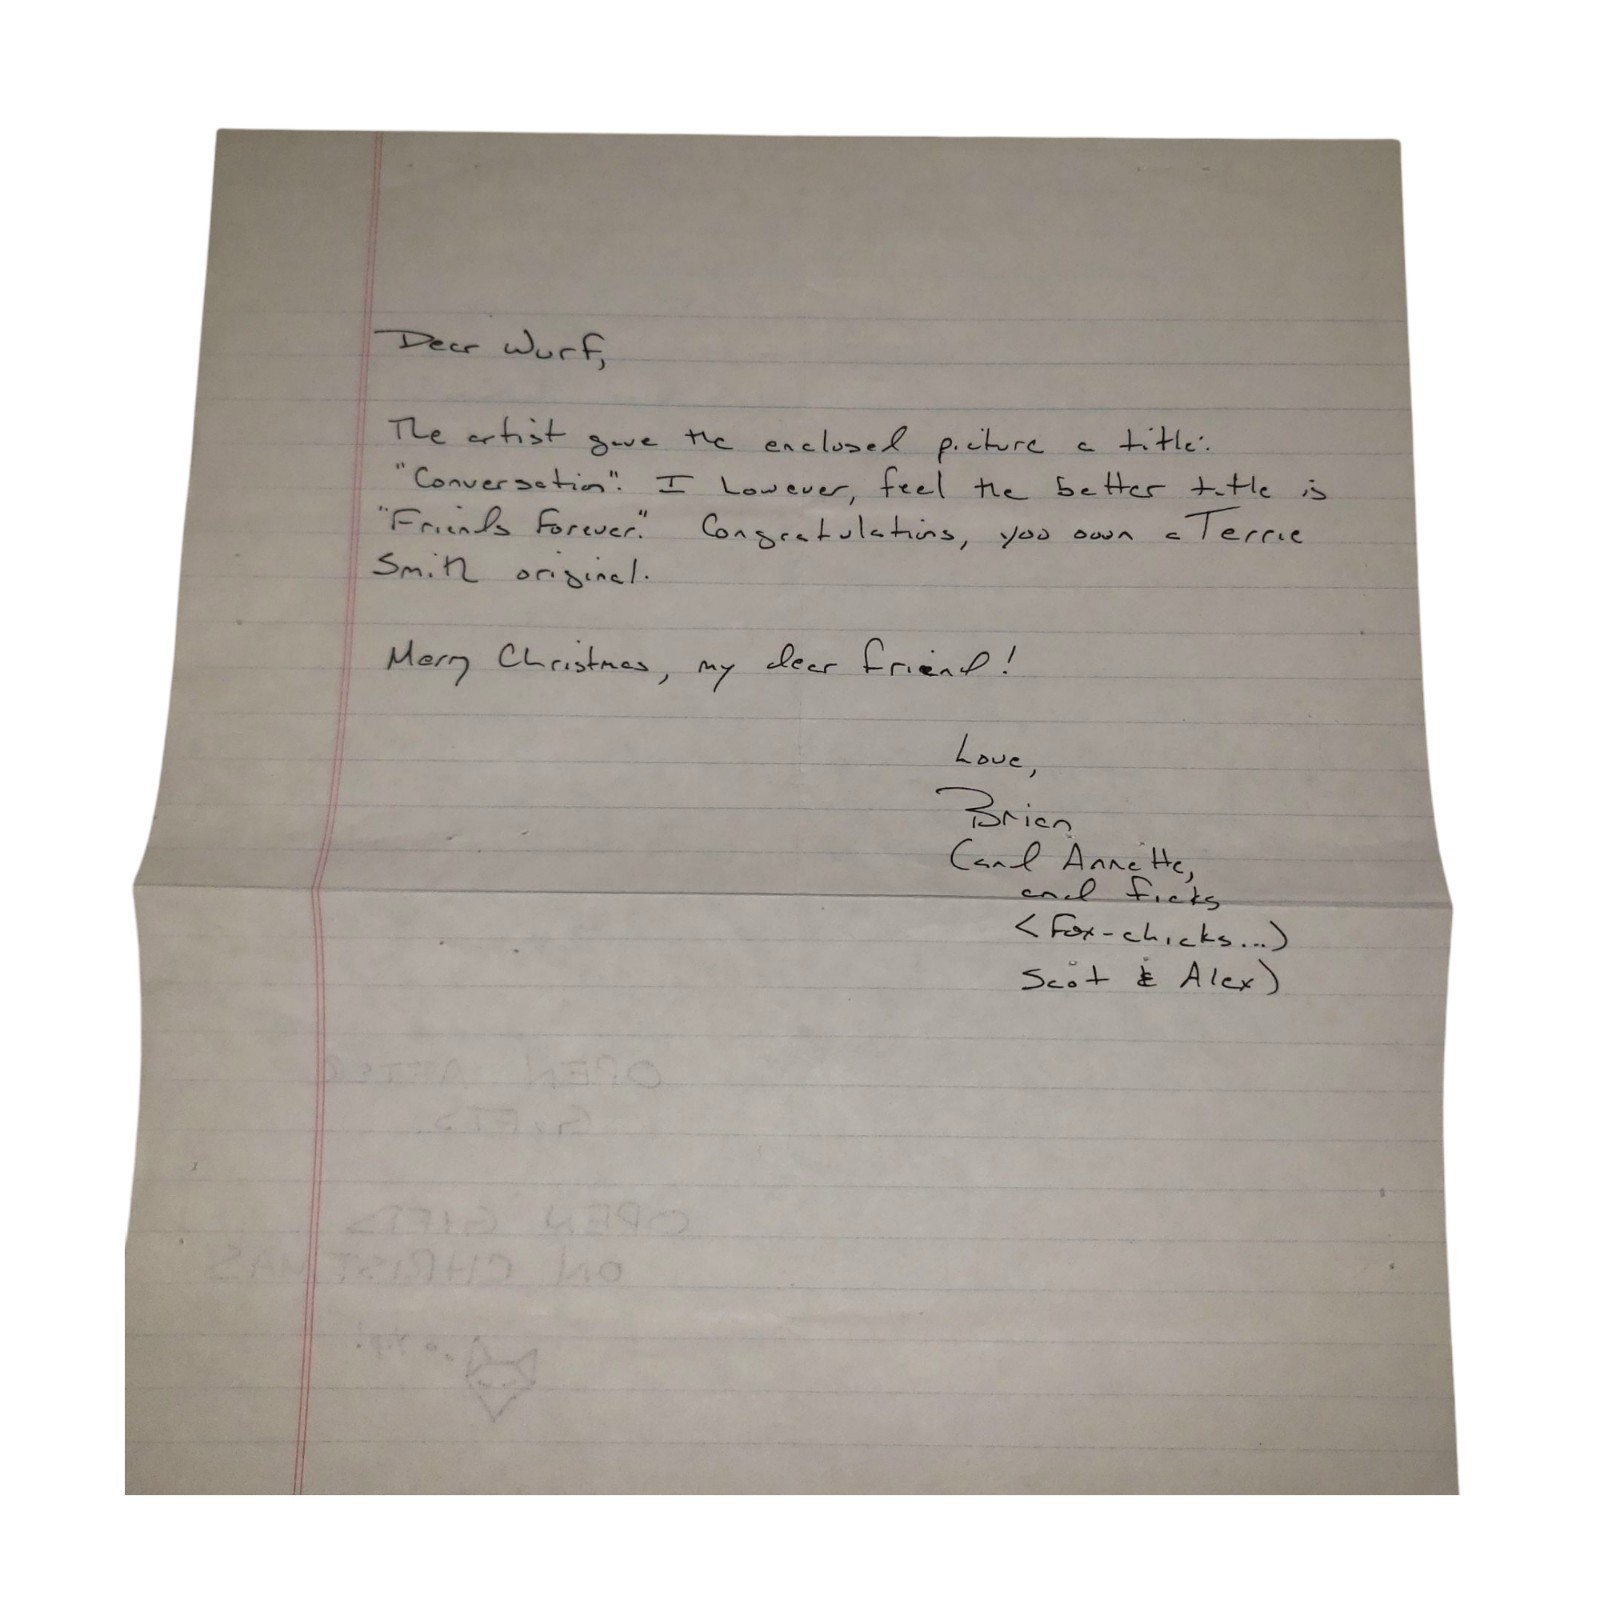 Dear Wurf,
The artist gave the enclosed picture a title:
"Conversation". I however, feel the better title is
"Friends Forever." Congratulations, you own a Terrie
Smith original.
Merry Christmas, my dear friend!
Love,
Brian
(and Annette,
and ficks
(fox-chicks...)
Scot & Alex)
OPEN AFTER
GIFTS
OPEN GIFTS
ON CHRISTMAS
Yip!